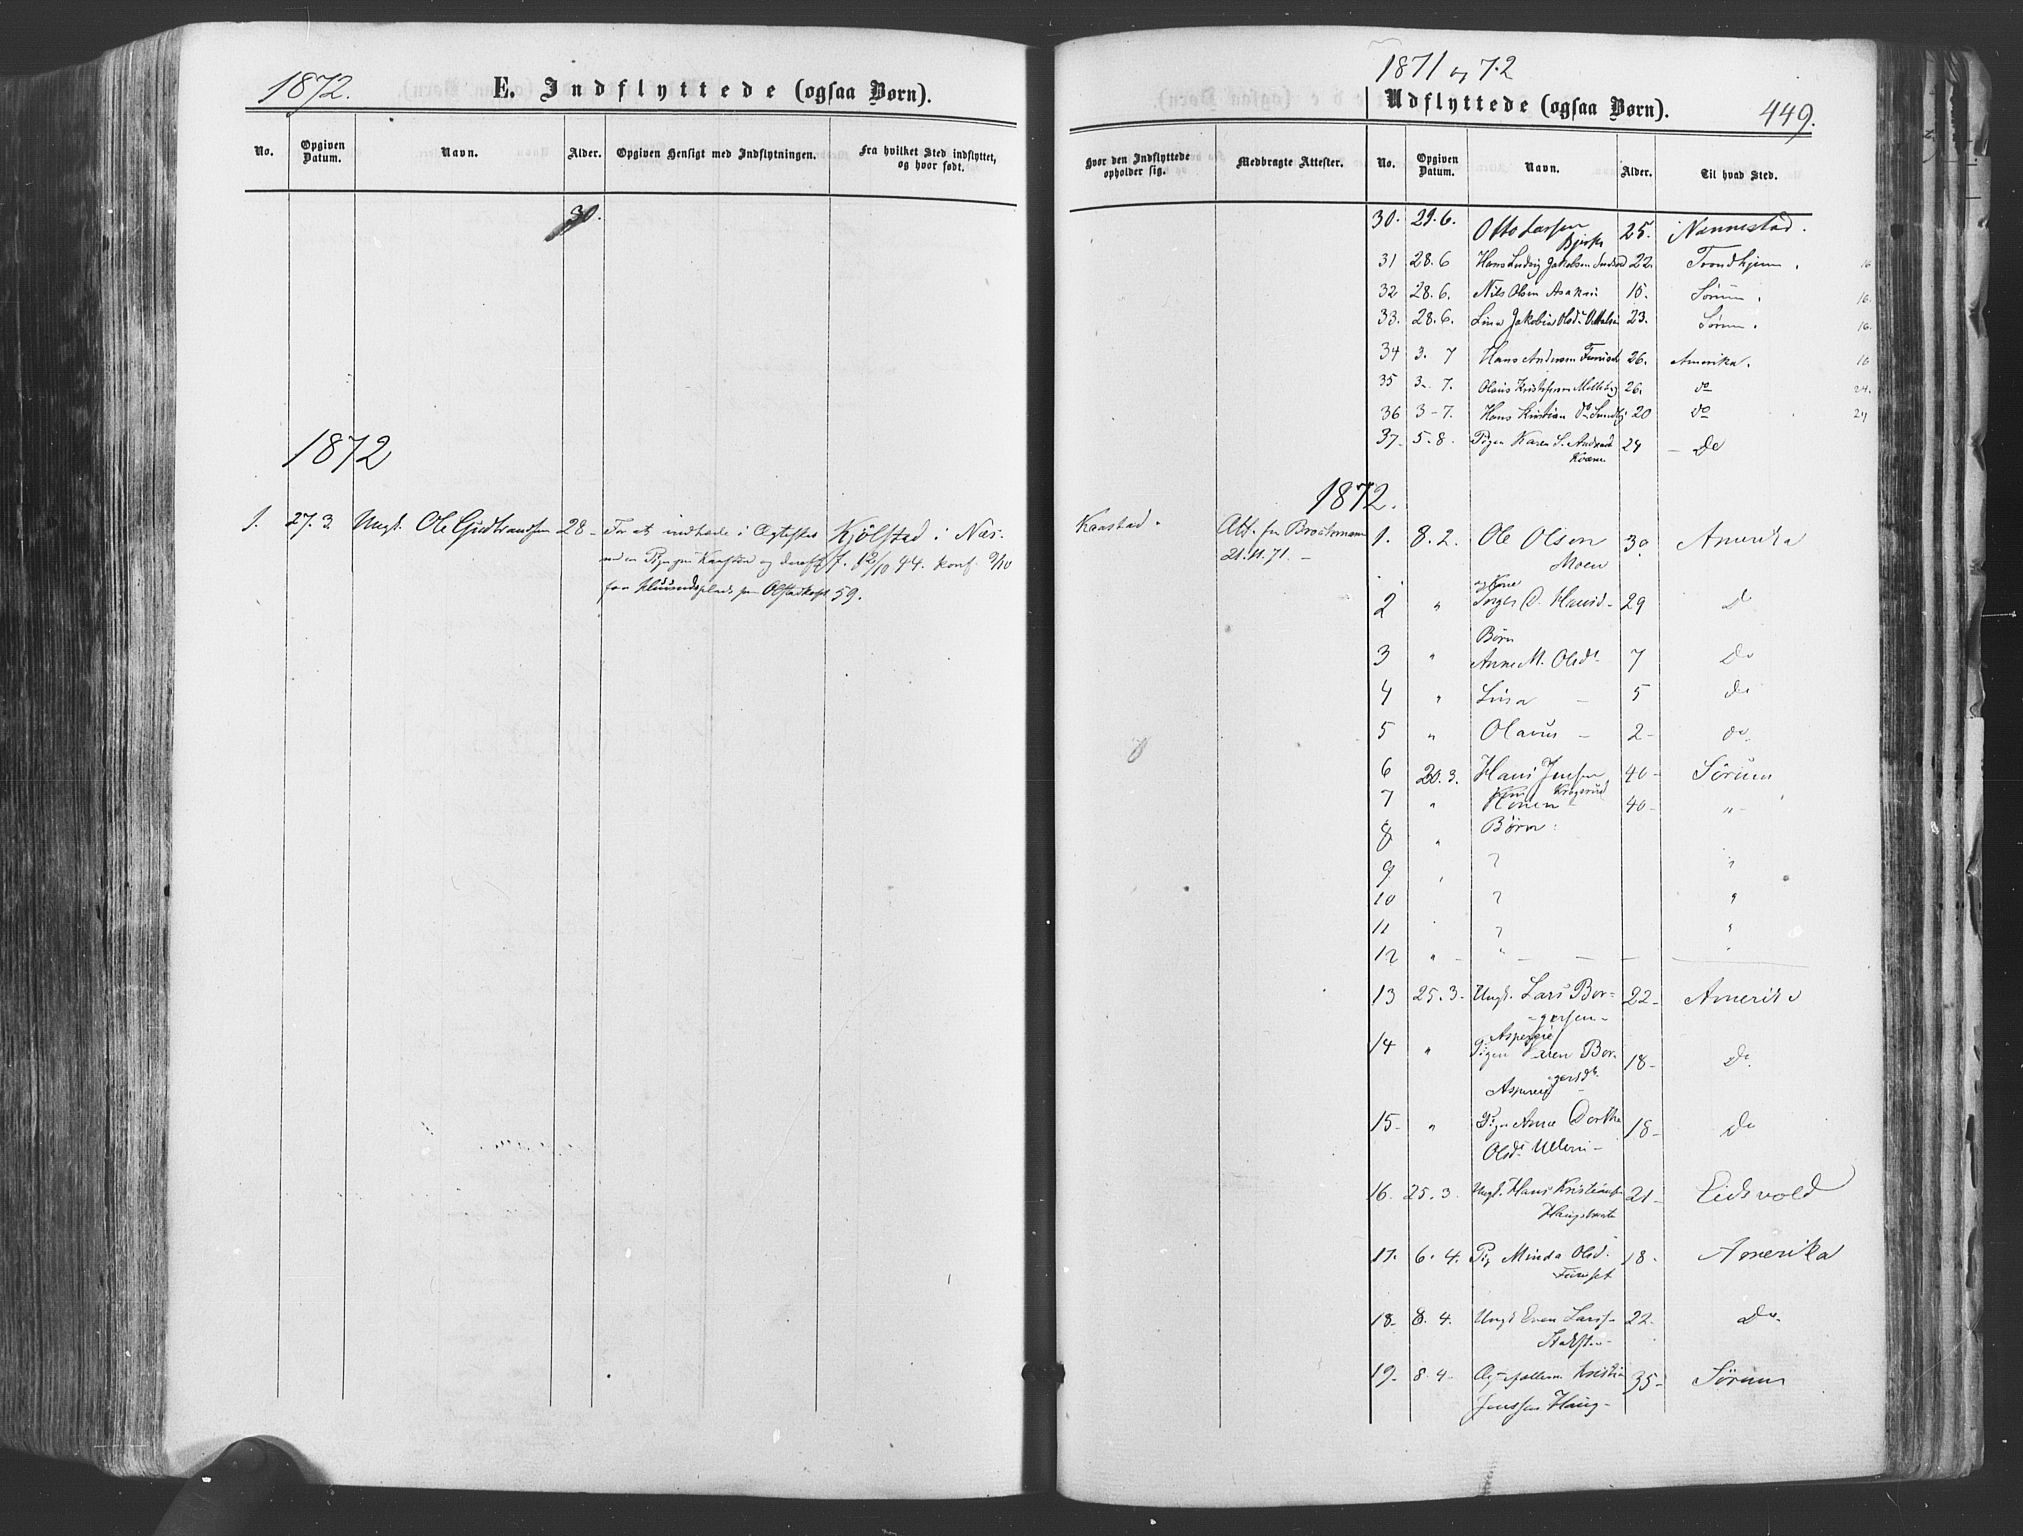 1872.
E. Indflyttede (ogsaa Børn).
No.
Opgiven Datum.
Navn.
Alder.
Opgiven Hensigt med Indflytningen.
Fra hvilket Sted indflyttet, og hvor født.
30.
1872
1. 27. 3. Ungk. Ole Gudbrandsen 28 - For at indtræde i Ægteskab Kjölstad i Næs.
f. 12/10 44. konf. 9/10
59.
1871 og 72
Udflyttede (ogsaa Børn).
449.
Hvor den Indflyttede opholder sig.
Medbragte Attester.
No.
Opgiven Datum.
Navn.
Alder.
Til hvad Sted.
30. 29. 6. Otto Larsen Bjerke 25. Nannestad.
31 28. 6 Hans Ludvig Jakobsen 22. Trondhjem. 16
32 28. 6. Nils Olsen Asaken 15. Sørum. 16.
33. 28. 6. Lina Jakobine Olsdr 23. Sørum. 16.
34 3. 7 Hans Andersen 26. Amerika. 10
35 3 - 7. Olaus Kristofersen Melleby 26. do 24.
36 3 - 7. Hans Kristian do 20 do 24
37 - 5 - 8. Pigen Karen 24 - Do
1872.
Kaastad. Att. fra
21. 11. 71. -
1. 8. 2. Ole Olsen Moen 30. Amerika
2 " og Kone
Hansd - 29 D
Børn
3 " Anne M. Olsdr 7 Do
4 " Lina - 5 do
5 " Olaus - 2 - do.
6 20. 3. Hans Jensen 40 - Sørum
Krogsrud
7 " Konen 40 - " -
8 " Børn:
9 ' ? "
10 ? "
11 ? "
12 " - " - - - "
13 25. 3 - Ungk. Lars Bor-
gersen - 22 - Amerika
Aspereie
14 " Pigen Karen Bor-
gersdr. 18 - Do.
15 - " Pigen Anne Dorthe 18 - Do
Olsdr Ulleri -
16. 25. 3. Ungk. Hans Kristiansen 21 - Eidsvold
17. 6. 4. Pig Minda Olsd. 18 - Amerika
Funset
18 - 8. 4. Ungk Even Larss - 22 - Do.
19 - 8 - 4 - Kristian 35 - Sørum
Jenssen Haug -